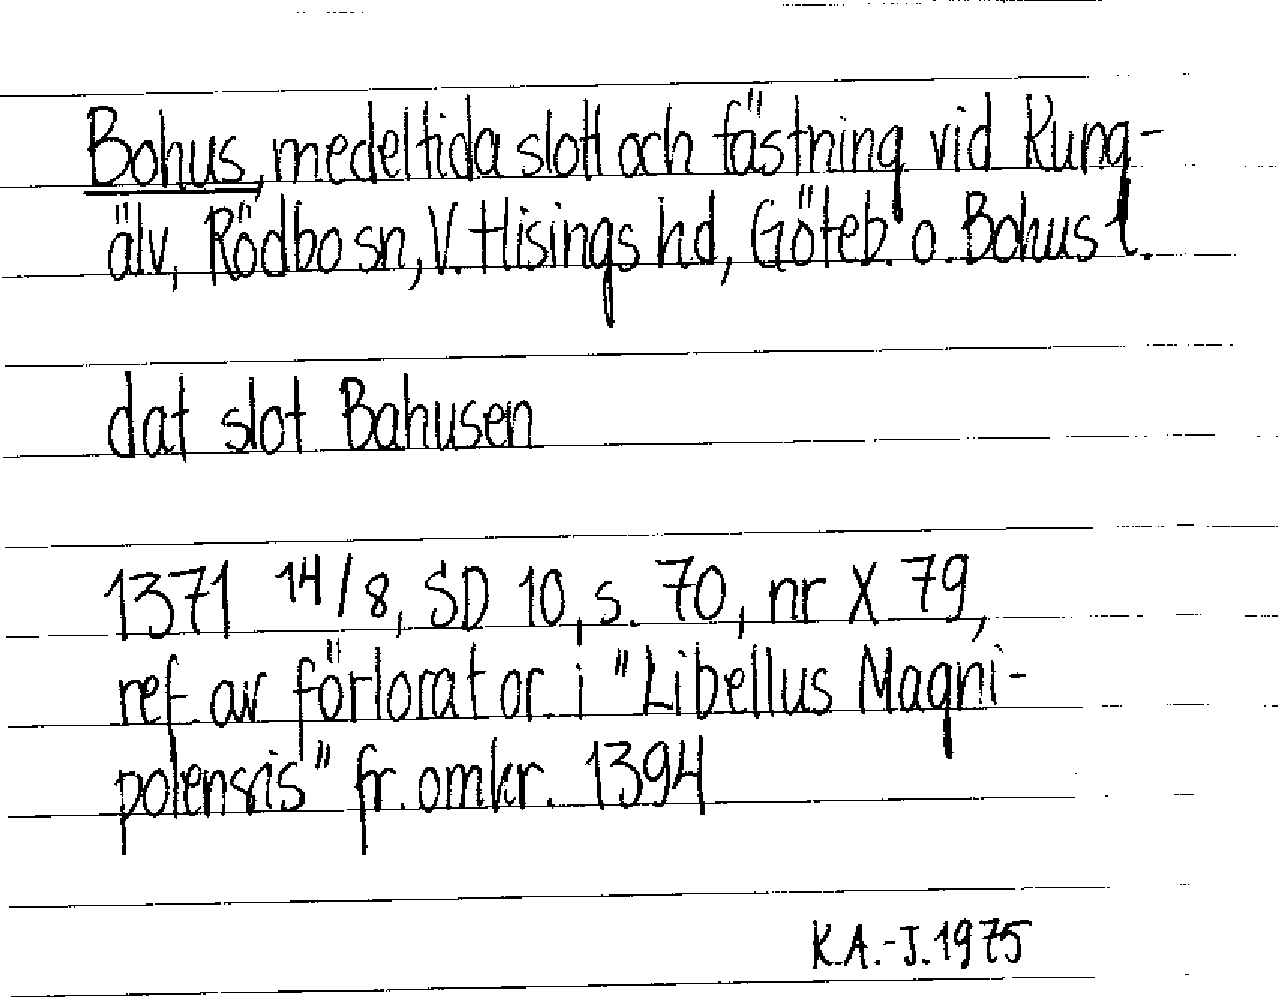 Bohus, medeltida slott och fästning vid Kung-
älv, Rödbo sn, V. Hisings hd, Göteb. o. Bohus l.
dat slot Bahusen
1371 14/8, SD 10, s. 70, nr X 79,
ref av förlorat or. i "Libellus Magni-
polensis" fr. omkr. 1394
K.A.-J. 1975